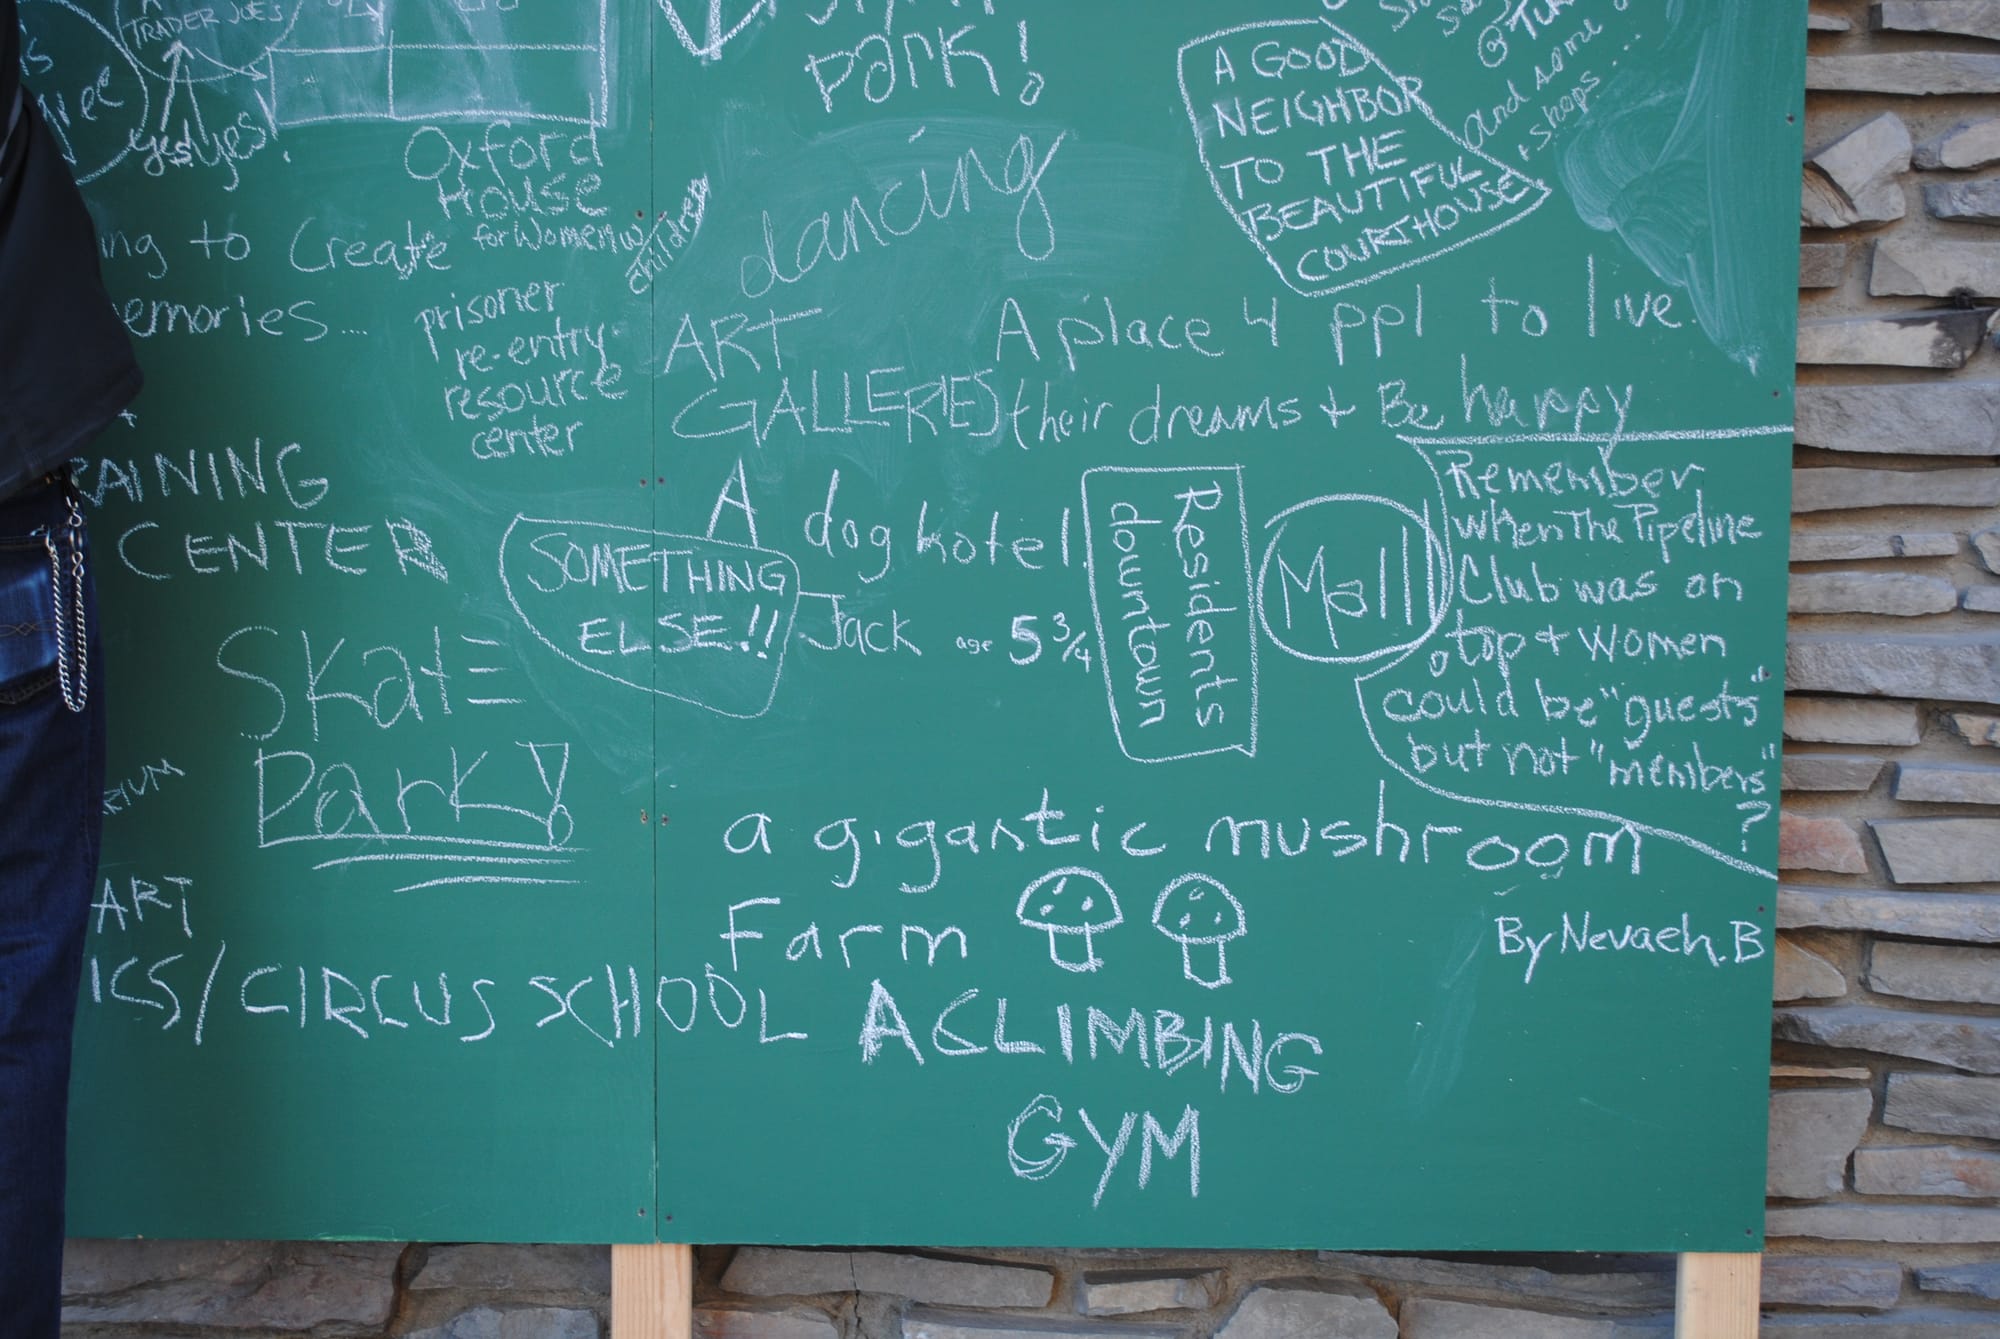 TRADER JOES
yes yes!
Oxford
House
for Women w/
children
ing to Create
emories....
prisoner
re-entry
resource
center
RAINING
CENTER
SkatE
Park!
RIUM
ART
ICS/CIRCUS SCHOOL
park!
dancing
ART
GALLERIES
A GOOD
NEIGHBOR
TO THE
BEAUTIFUL
COURTHOUSE
and some
+ shops...
A place 4 ppl to live.
their dreams + Be happy
A dog hotel.
Jack age 5 3/4
SOMETHING
ELSE!!
Residents
downtown
Mall
Remember
when The Pipeline
Club was on
top + Women
could be "guests"
but not "members"
?
a gigantic mushroom
Farm
By Nevaeh.B
A CLIMBING
GYM